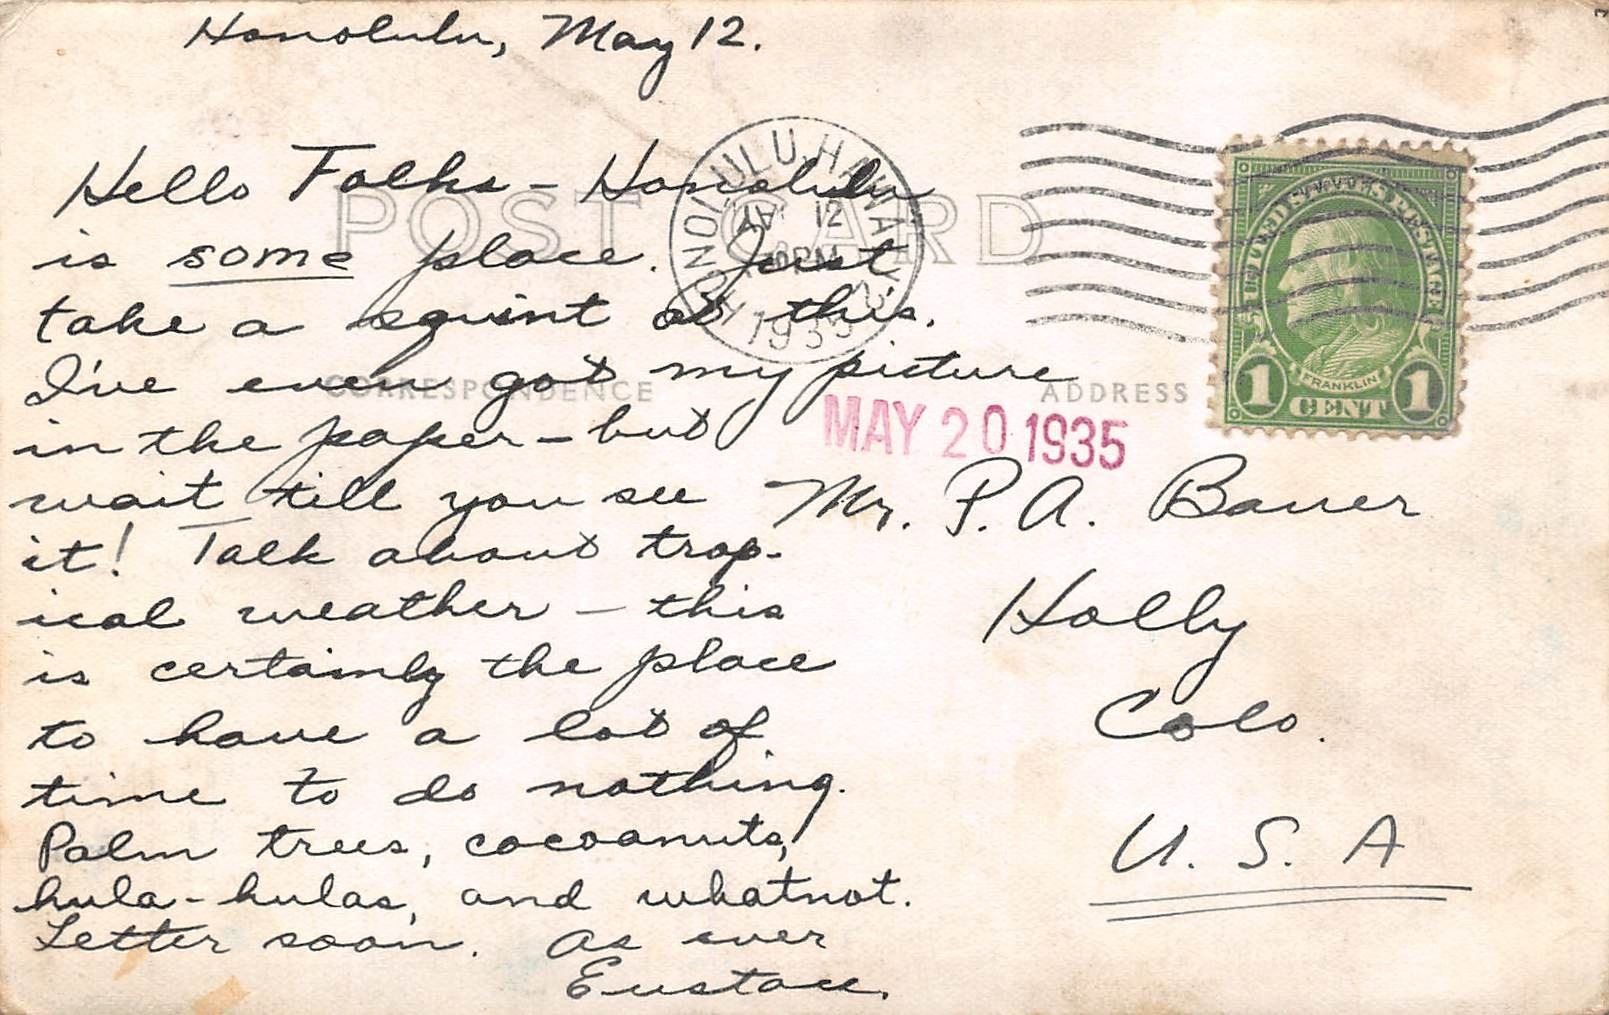 Honolulu, May 12.
Hello Folks - Honolulu
is some place. Just
take a squint at this.
I've even got my picture
in the paper - but
wait till you see
it! Talk about trop-
ical weather - this
is certainly the place
to have a lot of
time to do nothing.
Palm trees, cocoanuts,
hula-hulas, and whatnot.
Letter soon. As ever
Eustace.
POST CARD
CORRESPONDENCE
ADDRESS
HONOLULU, HAWAII
12
PM
1935
MAY 20 1935
UNITED STATES POSTAGE
FRANKLIN
1 CENT 1
Mr. P. A. Bauer
Holly
Colo.
U. S. A